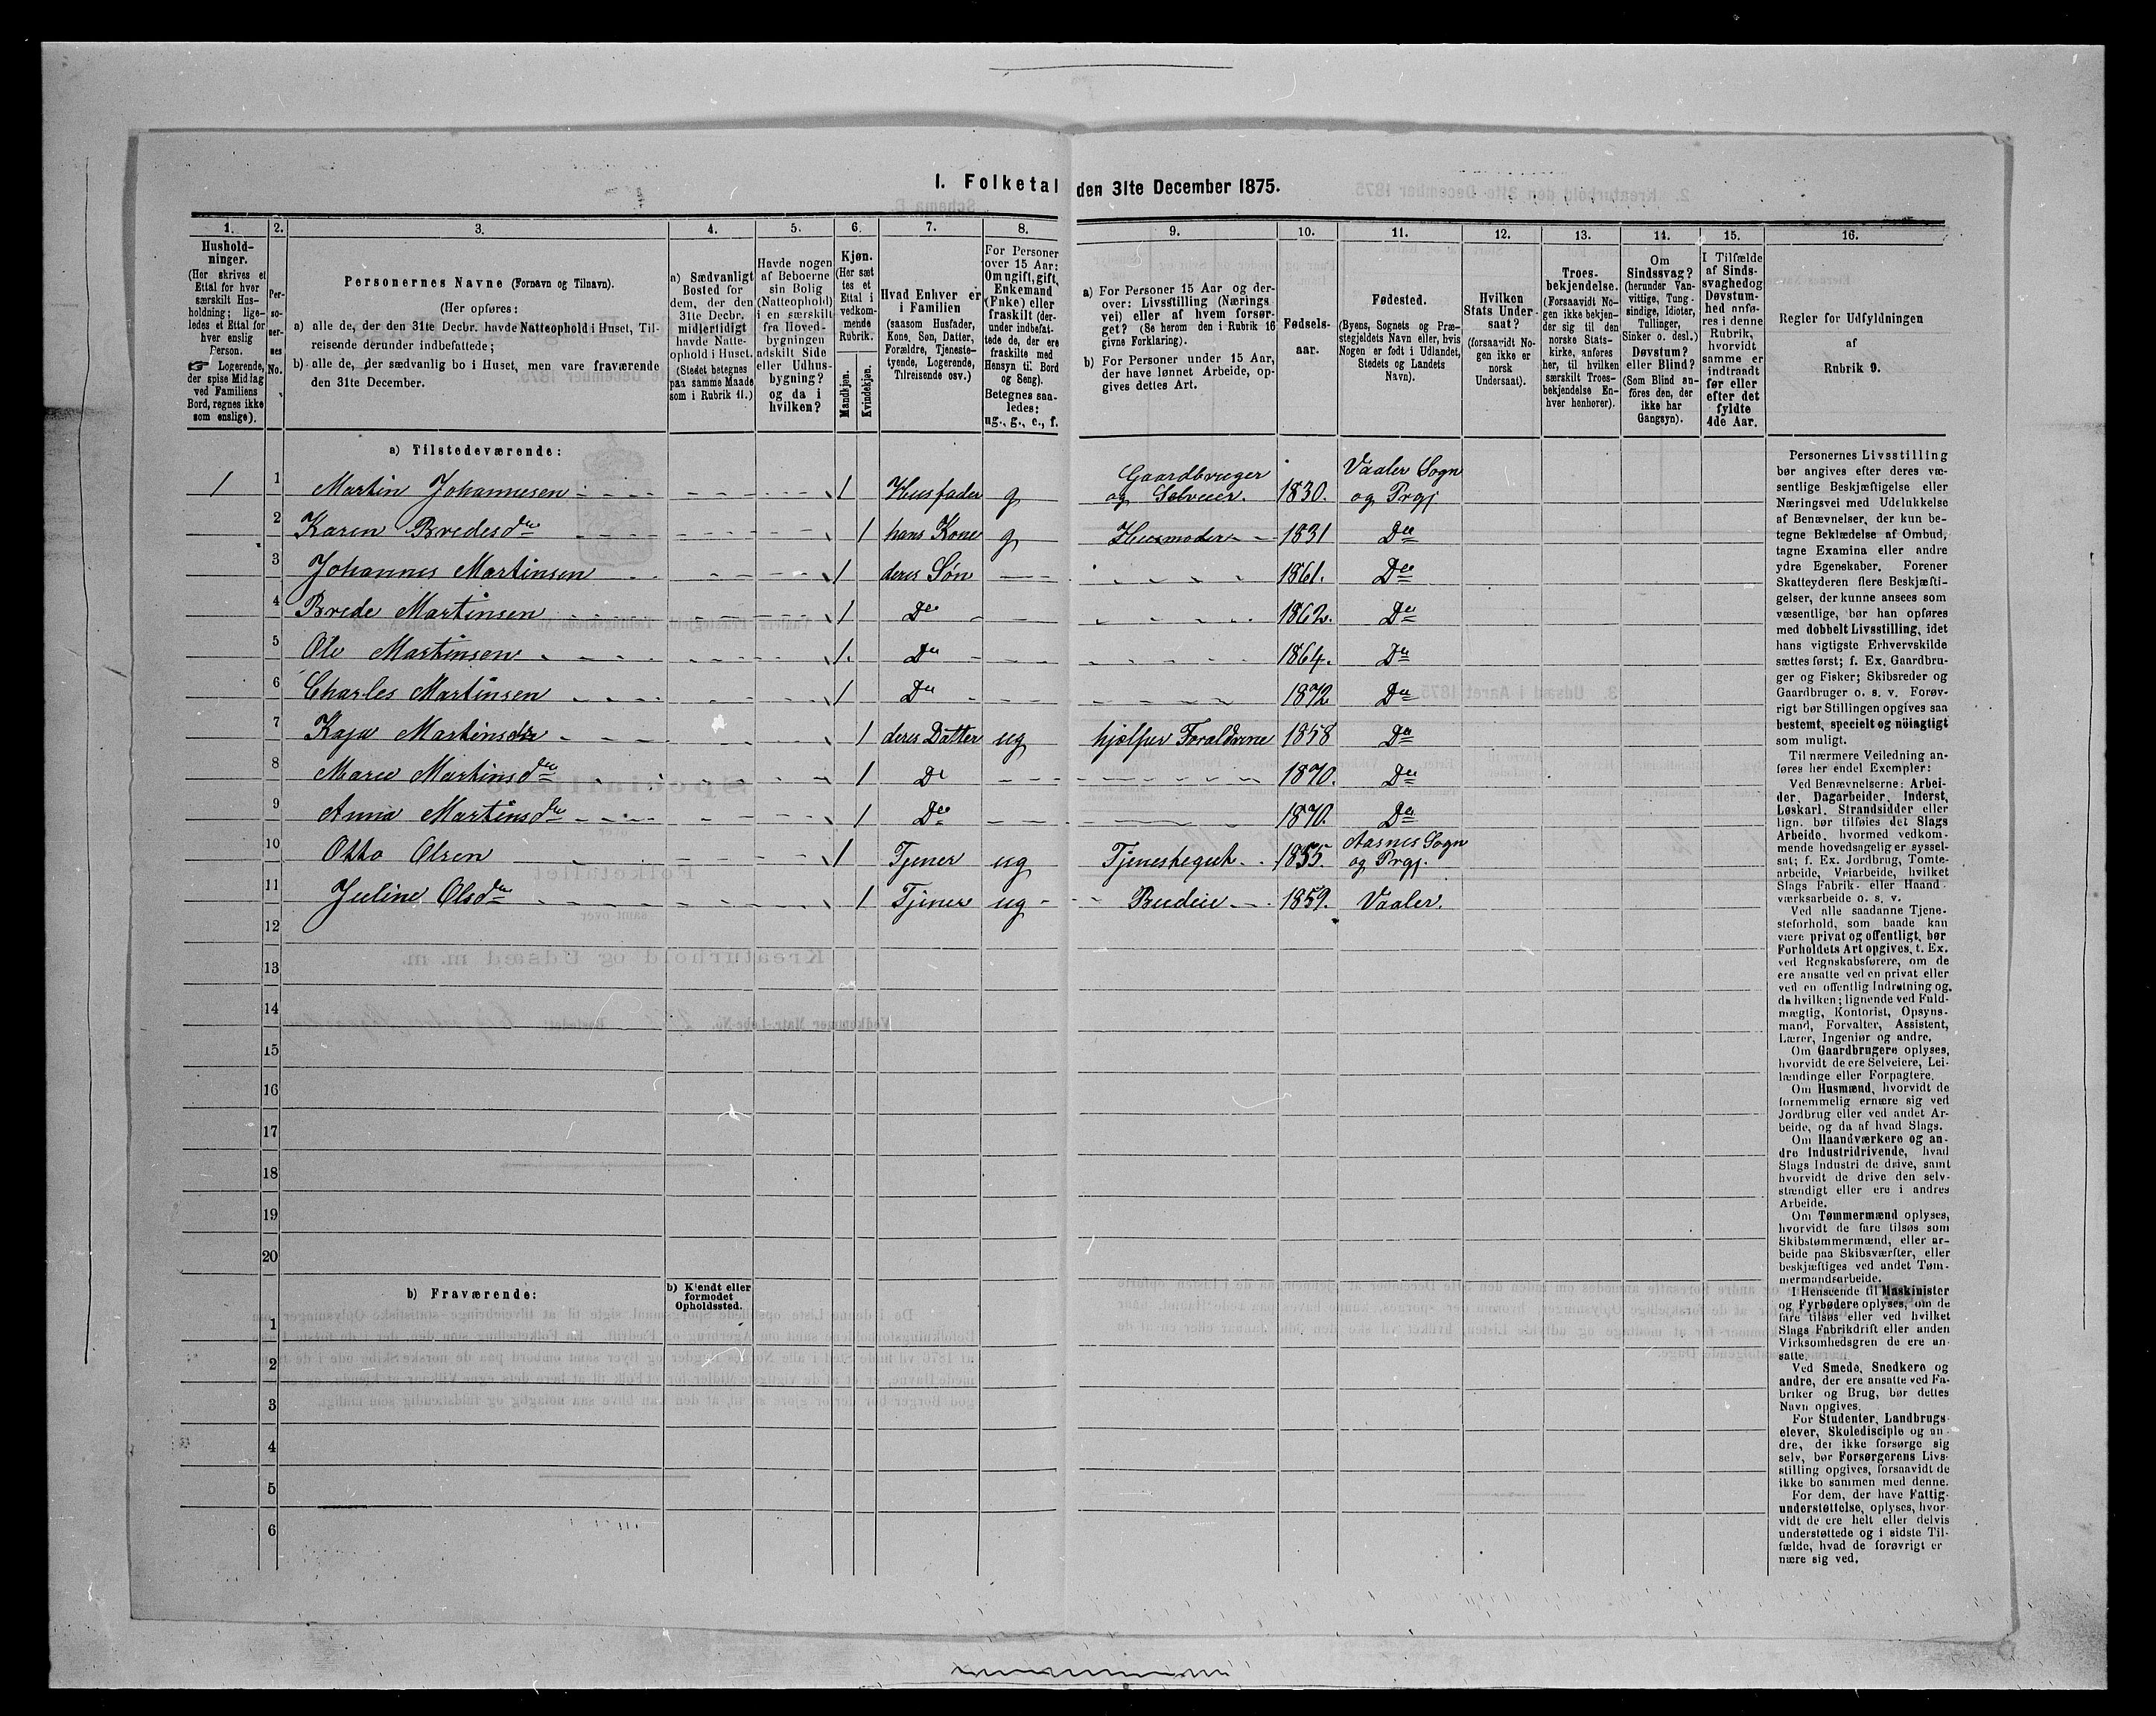 I. Folketal den 31te December 1875.
1.
Hushold-
ninger.
(Her skrives et
Ettal for hver
særskilt Hus-
holdning; lige-
ledes et Ettal for
hver enslig
Person.
☞ Logerende,
der spise Middag
ved Familiens
Bord, regnes ikke
som enslige).
2.
Per-
so-
ner-
nes
No.
3.
Personernes Navne (Fornavn og Tilnavn).
(Her opføres:
a) alle de, der den 31te Decbr. havde Natteophold i Huset, Til-
reisende derunder indbefattede;
b) alle de, der sædvanlig bo i Huset, men vare fraværende
den 31te December.
4.
a) Sædvanligt
Bosted for
dem, der den
31te Decbr.
midlertidigt
havde Natte-
ophold i Huset.
(Stedet betegnes
paa samme Maade
som i Rubrik 11.)
5.
Havde nogen
af Beboerne
sin Bolig
(Natteophold)
i en særskilt
fra Hoved-
bygningen
adskilt Side
eller Udhus-
bygning?
og da i
hvilken?
6.
Kjøn.
(Her sæt
tes et
Ettal i
vedkom-
mende
Rubrik.
Mandkjøn.
Kvindekjøn.
7.
Hvad Enhver er
i Familien
(saasom Husfader,
Kone, Søn, Datter,
Forældre, Tjeneste-
tyende, Logerende,
Tilreisende osv.)
8.
For Personer
over 15 Aar:
Om ugift, gift,
Enkemand
(Enke) eller
fraskilt (der-
under indbefat-
tede de, der ere
fraskilte med
Hensyn til Bord
og Seng).
Betegnes saa-
ledes:
ug., g., e., f.
9.
a) For Personer 15 Aar og der-
over: Livsstilling (Nærings
vei) eller af hvem forsør-
get? (Se herom den i Rubrik 16
givne Forklaring).
b) For Personer under 15 Aar,
der have lønnet Arbeide, op-
gives dettes Art.
10.
Fødsels-
aar.
11.
Fødested.
(Byens, Sognets og Præ-
stegjeldets Navn eller, hvis
Nogen er født i Udlandet,
Stedets og Landets
Navn).
12.
Hvilken
Stats Under-
saat?
(forsaavidt No-
gen ikke er
norsk
Undersaat).
13.
Troes-
bekjendelse.
(Forsaavidt No-
gen ikke bekjen-
der sig til den
norske Stats-
kirke, anføres
her, til hvilken
særskilt Troes-
bekjendelse En-
hver henhører).
14.
Om
Sindssvag?
(herunder Van-
vittige, Tung-
sindige, Idioter,
Tullinger,
Sinker o. desl.)
Døvstum?
eller Blind?
(Som Blind an-
føres den, der
ikke har
Gangsyn).
15.
I Tilfælde
af Sinds-
svaghed og
Døvstum-
hed anfø-
res i denne
Rubrik,
hvorvidt
samme er
indtraadt
før eller
efter det
fyldte
4de Aar.
16.
Regler for Udfyldningen
af
Rubrik 9.
a) Tilstedeværende:
1 1 Martin Johannesen 1 Husfader g Gaardbruger og Selveier. 1830. Vaaler Sogn og Prgj
2 Karen Bredesdtr 1 hans Kone g Husmoder 1831 Do
3 Johannes Martinsen 1 deres Søn 1861. Do
4 Brede Martinsen 1 Do 1862. Do
5 Ole Martinsen 1. Do 1864. Do
6 Charles Martinsen 1 Do 1872 Do
7 Kaja Martinsdtr 1 deres Datter ug hjælper Forældrene 1858 Do
8 Maree Martinsdtr 1 Do 1870. Do
9 Anna Martinsdtr 1 Do 1870. Do
10 Otto Olsen 1 Tjener ug Tjenestegut 1855. Aasnes Sogn og Prgj.
11 Juline Olsdtr 1 Tjener ug Budeie 1859. Vaaler.
12
13
14
15
16
17
18
19
20
b) Fraværende:
b) Kjendt eller
formodet
Opholdssted.
1
2
3
4
5
6
Personernes Livsstilling
bør angives efter deres væ-
sentlige Beskjæftigelse eller
Næringsvei med Udelukkelse
af Benævnelser, der kun be-
tegne Beklædelse af Ombud,
tagne Examina eller andre
ydre Egenskaber. Forener
Skatteyderen flere Beskjæfti-
gelser, der kunne ansees som
væsentlige, bør han opføres
med dobbelt Livsstilling, idet
hans vigtigste Erhvervskilde
sættes først; f. Ex. Gaardbru-
ger og Fisker; Skibsreder og
Gaardbruger o. s. v. Forøv-
rigt bør Stillingen opgives saa
bestemt, specielt og nöiagtigt
som muligt.
Til nærmere Veiledning an-
føres her endel Exempler:
Ved Benævnelserne: Arbei-
der, Dagarbeider, Inderst,
Løskarl, Strandsidder eller
lign. bør tilføies det Slags
Arbeide, hvormed vedkom-
mende hovedsagelig er syssel-
sat; f. Ex. Jordbrug, Tomte-
arbeide, Veiarbeide, hvilket
Slags Fabrik- eller Haand-
værksarbeide o. s. v.
Ved alle saadanne Tjene-
steforhold, som baade kan
være privat og offentligt, bør
Forholdets Art opgives, t. Ex.
ved Regnskabsførere, om de
ere ansatte ved en privat eller
ved en offentlig Indretning og
da hvilken; lignende ved Fuld-
mægtig, Kontorist, Opsyns-
mand, Forvalter, Assistent,
Lærer, Ingeniør og andre.
Om Gaardbrugere oplyses,
hvorvidt de ere Selveiere, Lei-
lændinge eller Forpagtere.
Om Husmænd, hvorvidt de
fornemmelig ernære sig ved
Jordbrug eller ved andet Ar-
beide, og da af hvad Slags.
Om Haandværkere og an-
dre Industridrivende, hvad
Slags Industri de drive, samt
hvorvidt de drive den selv-
stændigt eller ere i andres
Arbeide.
Om Tømmermænd oplyses,
hvorvidt de fare tilsøs som
Skibstømmermænd, eller ar-
beide paa Skibsværfter, eller
beskjæftiges ved andet Tøm-
mermandsarbeide.
I Henseende til Maskinister
og Fyrbødere oplyses, om de
fare tilsøs eller ved hvilket
Slags Fabrikdrift eller anden
Virksomhedsgren de ere an-
satte.
Ved Smede, Snedkere og
andre, der ere ansatte ved Fa-
briker og Brug, bør dettes
Navn opgives.
For Studenter, Landbrugs-
elever, Skoledisciple og an-
dre, der ikke forsørge sig
selv, bør Forsørgerens Livs-
stilling opgives, forsaavidt de
ikke bo sammen med denne.
For dem, der have Fattig-
understøttelse, oplyses, hvor-
vidt de ere helt eller delvis
understøttede og i sidste Til-
fælde, hvad de forøvrigt er
nære sig ved.